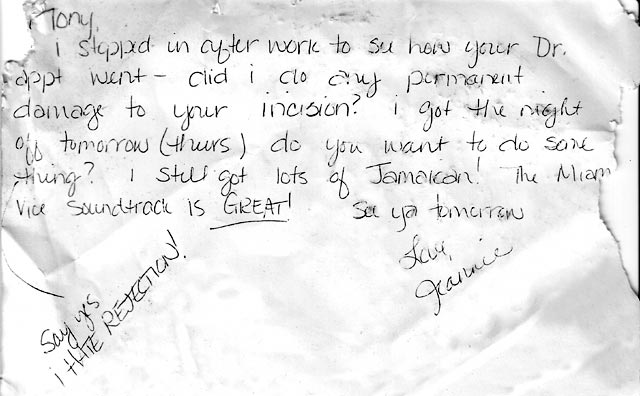 Tony,
i stopped in after work to see how your Dr.
appt went - did i do any permanent
damage to your incision? i got the night
off tomorrow (thurs) do you want to do some
thing? i still got lots of Jamaican! The Miami
Vice Soundtrack is GREAT! See ya tomorrow
Love,
Jeannie
Say yes
i HATE REJECTION!